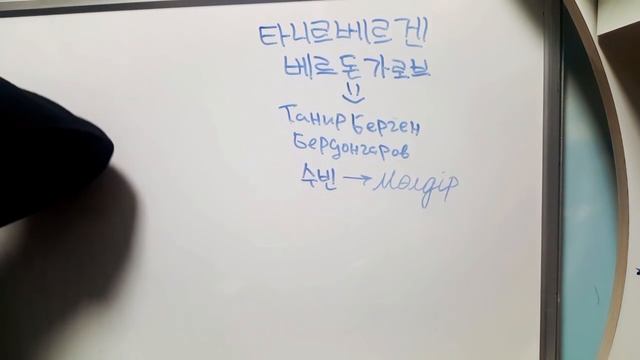 타니르베르겐
베르돈가로브
Танирберген
Бердонгаров
수빈 → Мөлдір